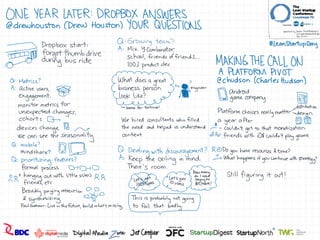 ONE YEAR LATER: DROPBOX ANSWERS
@drewhouston (Drew Houston) YOUR QUESTIONS
Dropbox start:
forgot thumbdrive
during bus ride
Q: Metrics?
A: active users,
engagement.
monitor metrics for
unexpected changes,
cohorts
devices change
We can see the seasonality
Q: mobile?
mindshare?
Q: prioritizing features?
formal process
+ hanging out with little sister's
friends, etc
Broadly, paying attention
& synthesizing
Paul Graham: Live in the future, build what's missing.
Q: Growing team?
A: Mix: Y Combinator
school, friends of friends...
100% product dev
What does a great
business person
look like?
engineer
We hired consultants who filled
the need and helped us understand
context
Q: Dealing with discouragement?
A: Keep the ceiling in mind.
There's room.
This is probably not going
to fail that badly.
The Lean Startup Conference
#LeanStartupDay
MAKING THE CALL ON
A PLATFORM PIVOT
@chudson (Charles Hudson)
Android
game company
Platform choices really matter
distribution
design
a year after
couldn't get to that monetization
friends with iOS couldn't play games
Do you have resources & time?
What happens if you continue with strategy?
Still figuring it out!
BDC
Digital Media Zone
Jet Cooper
DFC
StartupDigest
StartupNorth